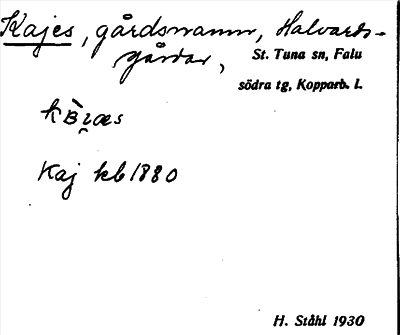 Kajes, gårdsnamn, Halvards-
gårdar, St. Tuna sn, Falu
södra tg, Kopparb. l.
Kaj kb 1880
H. Ståhl 1930